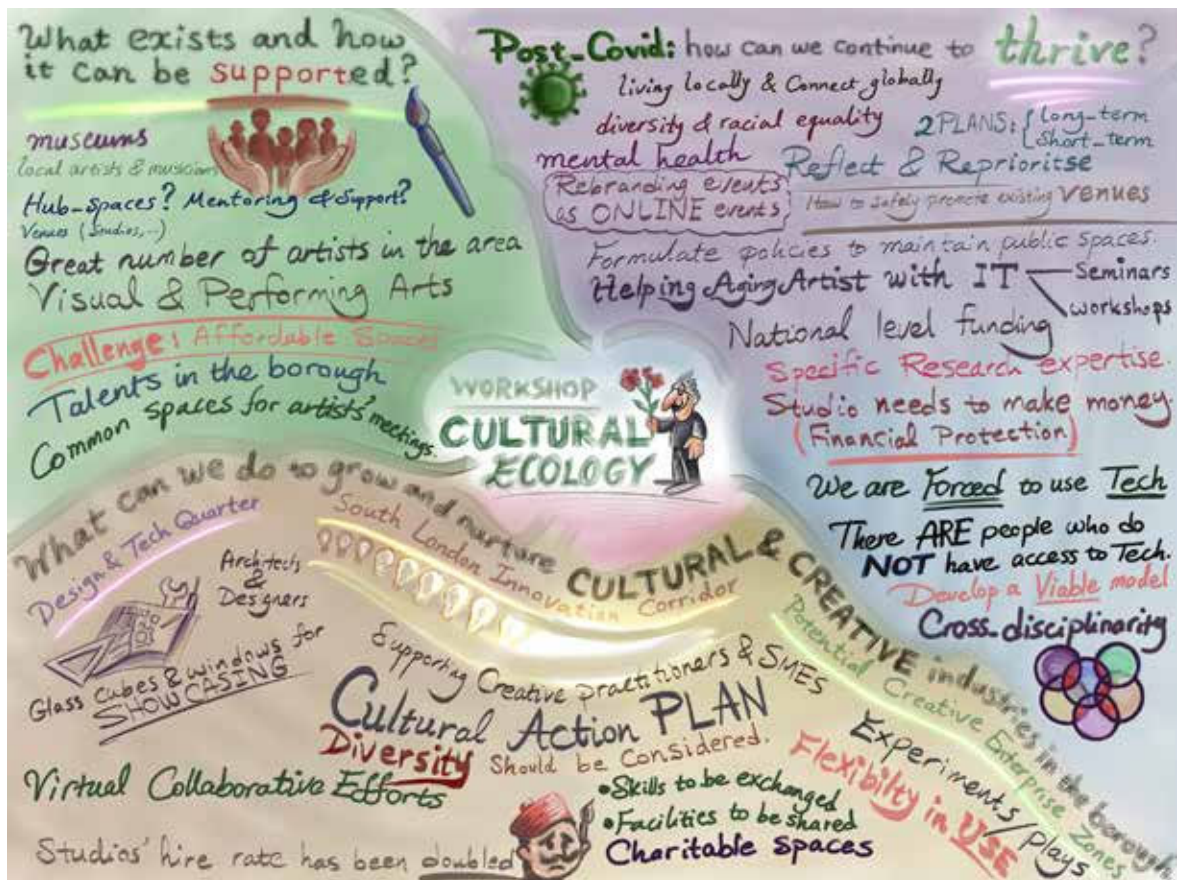 What exists and how
it can be supported?
museums
local artists & musicians
Hub-spaces? Mentoring & Support?
Venues (Studios,...)
Great number of artists in the area
Visual & Performing Arts
Challenge: Affordable Spaces
Talents in the borough
Common spaces for artists' meetings.
Post-Covid: how can we continue to thrive?
living locally & Connect globally
diversity & racial equality
2 PLANS: { Long-term
Short-term
mental health
Reflect & Reprioritse
Rebranding events
as ONLINE events
How to Safely promote existing venues
Formulate policies to maintain public spaces.
Helping Aging Artist with IT
Seminars
workshops
National level funding
Specific Research expertise.
Studio needs to make money.
(Financial Protection)
We are Forced to use Tech
There ARE people who do
NOT have access to Tech.
Develop a Viable model
Cross-disciplinarity
WORKSHOP
CULTURAL
ECOLOGY
What can we do to grow and nurture CULTURAL & CREATIVE industries in the borough
Design & Tech Quarter
Architects
&
Designers
Glass cubes & windows for
SHOWCASING
South London Innovation Corridor
Supporting Creative practitioners & SMEs
Cultural Action PLAN
Diversity Should be Considered.
Virtual Collaborative Efforts
• Skills to be exchanged
• Facilities to be shared
Charitable Spaces
Studios' hire rate has been doubled
Potential Creative Enterprise Zones
Experiments/plays
Flexibilty in USE